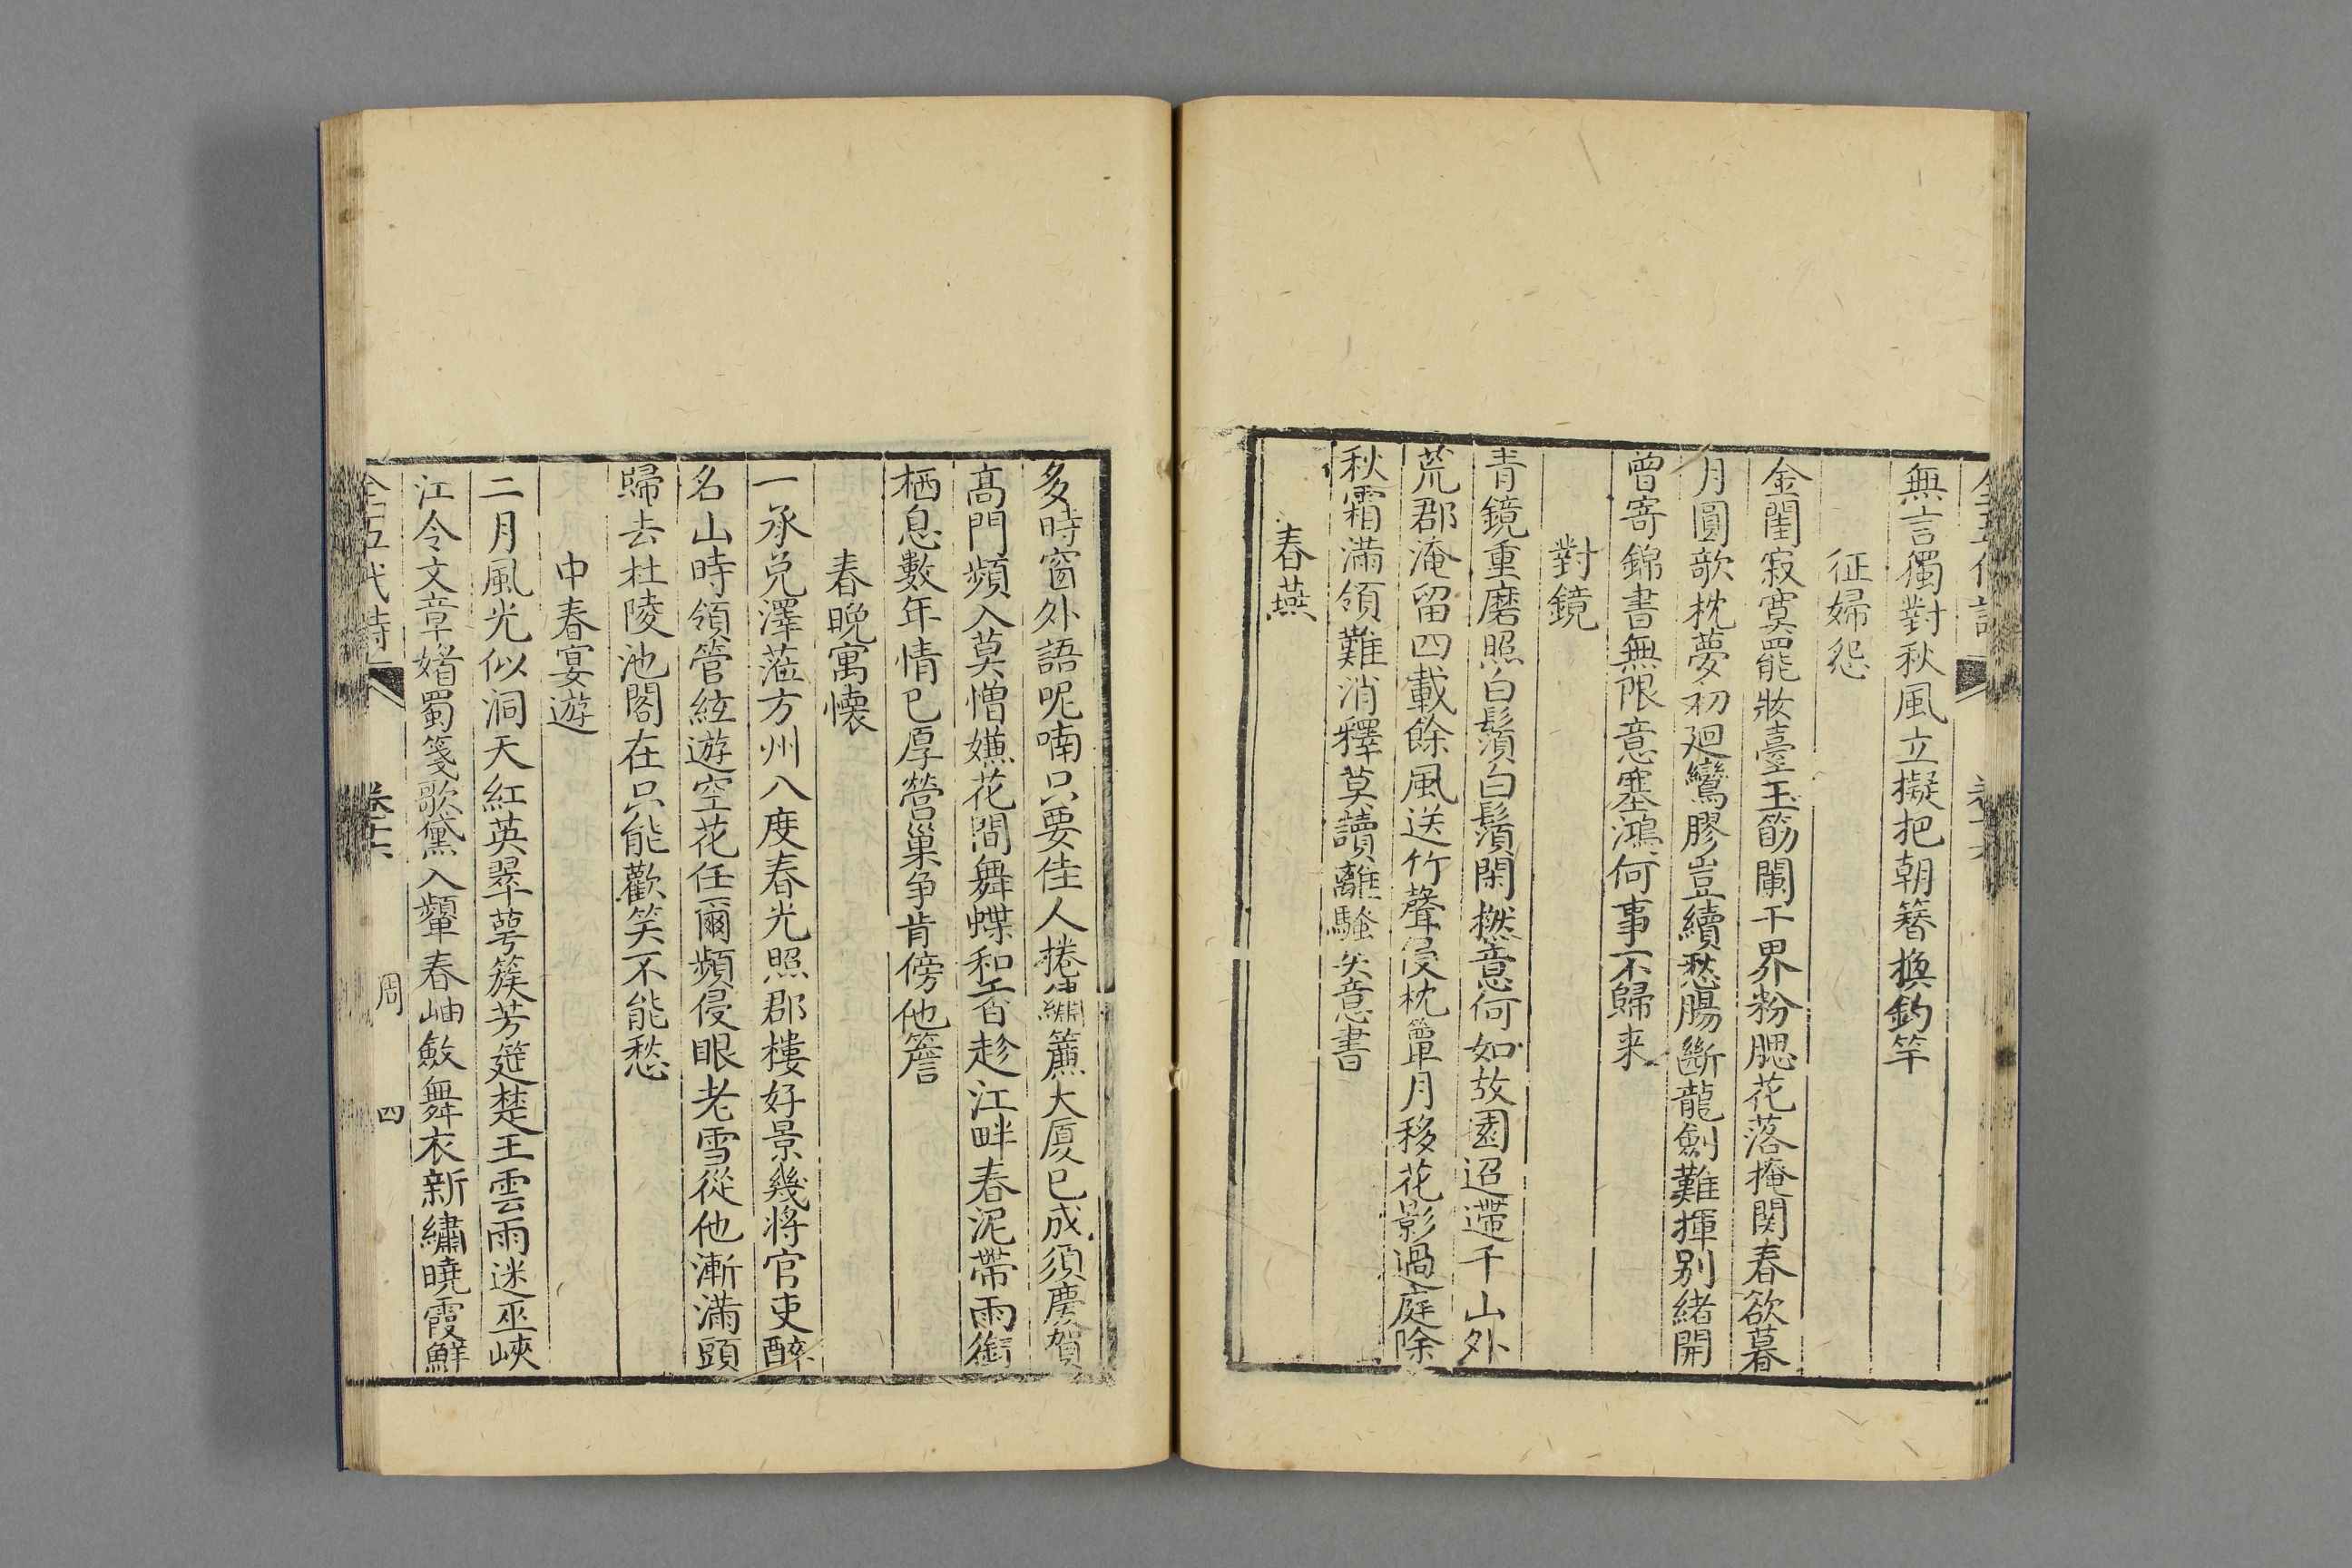 無言獨對秋風立擬把朝簪換釣竿
征婦怨
金閨寂寞罷妝臺玉筯闌干界粉腮花落掩関春欲暮
月圓欹枕夢初廻鸞膠豈續愁腸斷龍劍難揮别緒開
曾寄錦書無限意塞鴻何事不歸来
對鏡
青鏡重磨照白鬚白鬚閑撚意何如故園迢遰千山外
荒郡淹留四載餘風送竹聲侵枕簟月移花影過庭除
秋霜滿領難消釋莫讀離騷失意書
春燕
多時窗外語呢喃只要佳人捲繡簾大厦已成須慶賀
高門頻入莫憎嫌花間舞蝶和香趁江畔春泥帶雨銜
栖息數年情已厚營巢争肯傍他簷
春晚寓懷
一承兑澤蒞方州八度春光照郡樓好景幾將官吏醉
名山時領管絃遊空花任爾頻侵眼老雪從他漸滿頭
歸去杜陵池閣在只能歡笑不能愁
中春宴遊
二月風光似洞天紅英翠萼簇芳筵楚王雲雨迷巫峽
江令文章媚蜀箋歌黛入顰春岫斂舞衣新繡曉霞鮮
全五代詩
卷十六
周
四